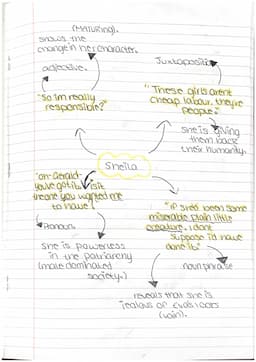 (MATURING).
shows the
change in her character.
adjective.
"So im really
responsible?"
Juxtaposition
"These girls arent
cheap labour. they're
people."
she is giving
them back
their humanity.
Sheila
"oh-Gerald-
you've got it. is it
the one you wanted me
to have?
Pronoun.
She is powerless
in the patriarchy
(male dominated
society.)
"if she'd been some
miserable plain little
creature. I dont
suppose i'd have
done it."
noun phrase
reveals that she is
jealous of Eva's looks
(vain).